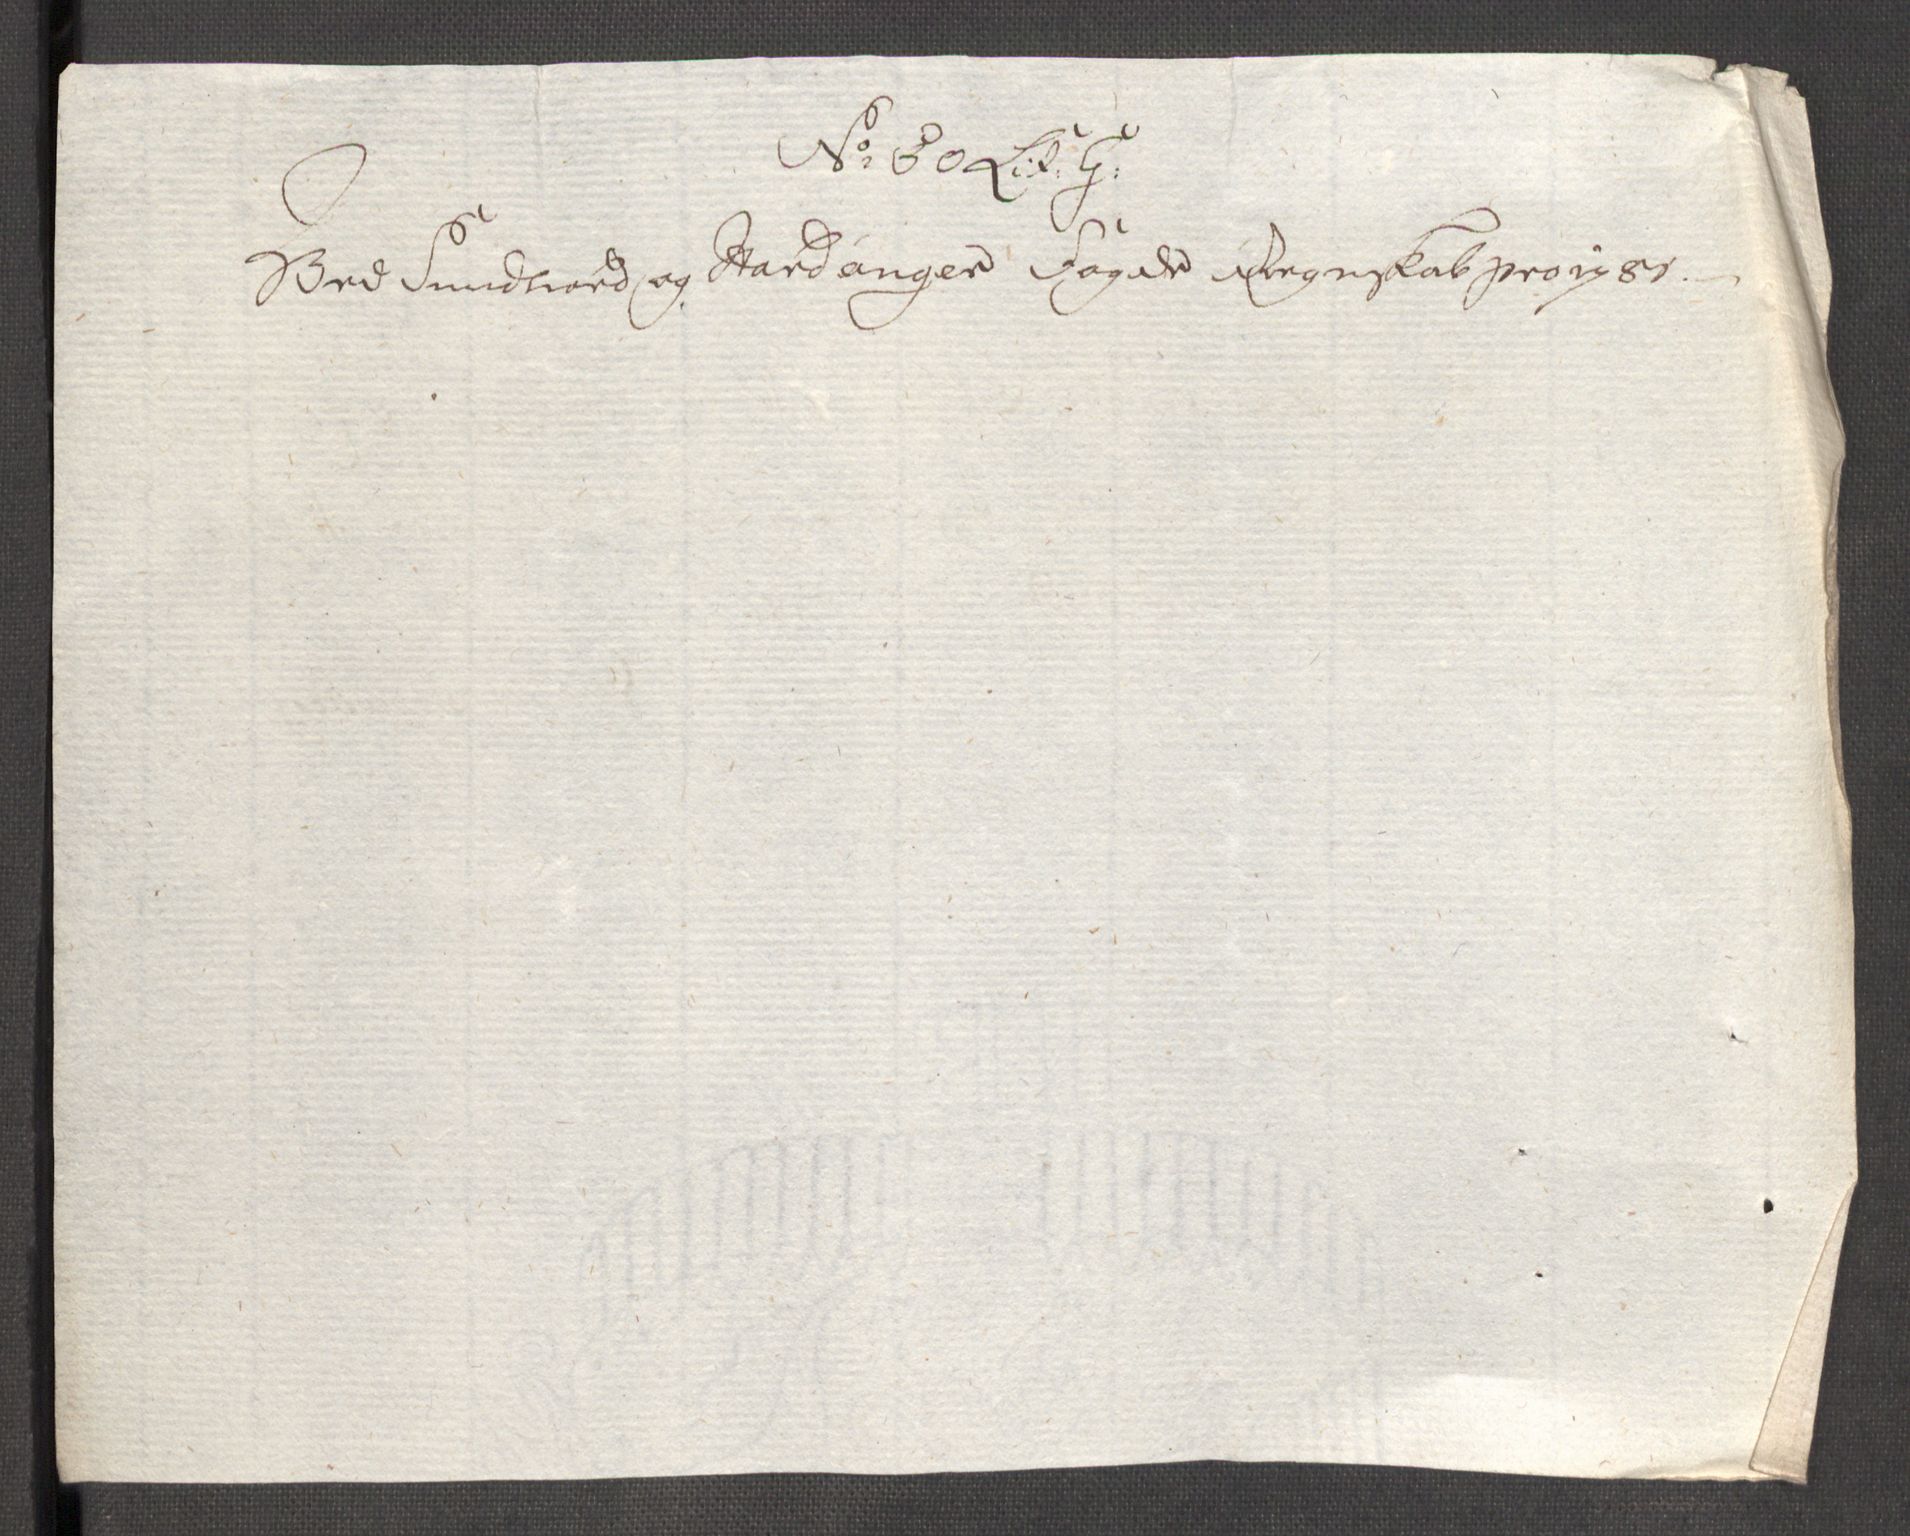 No: 80 Lit: G:
Ved Sundhord og Hardanger Fogde Regnskab pro 1781.